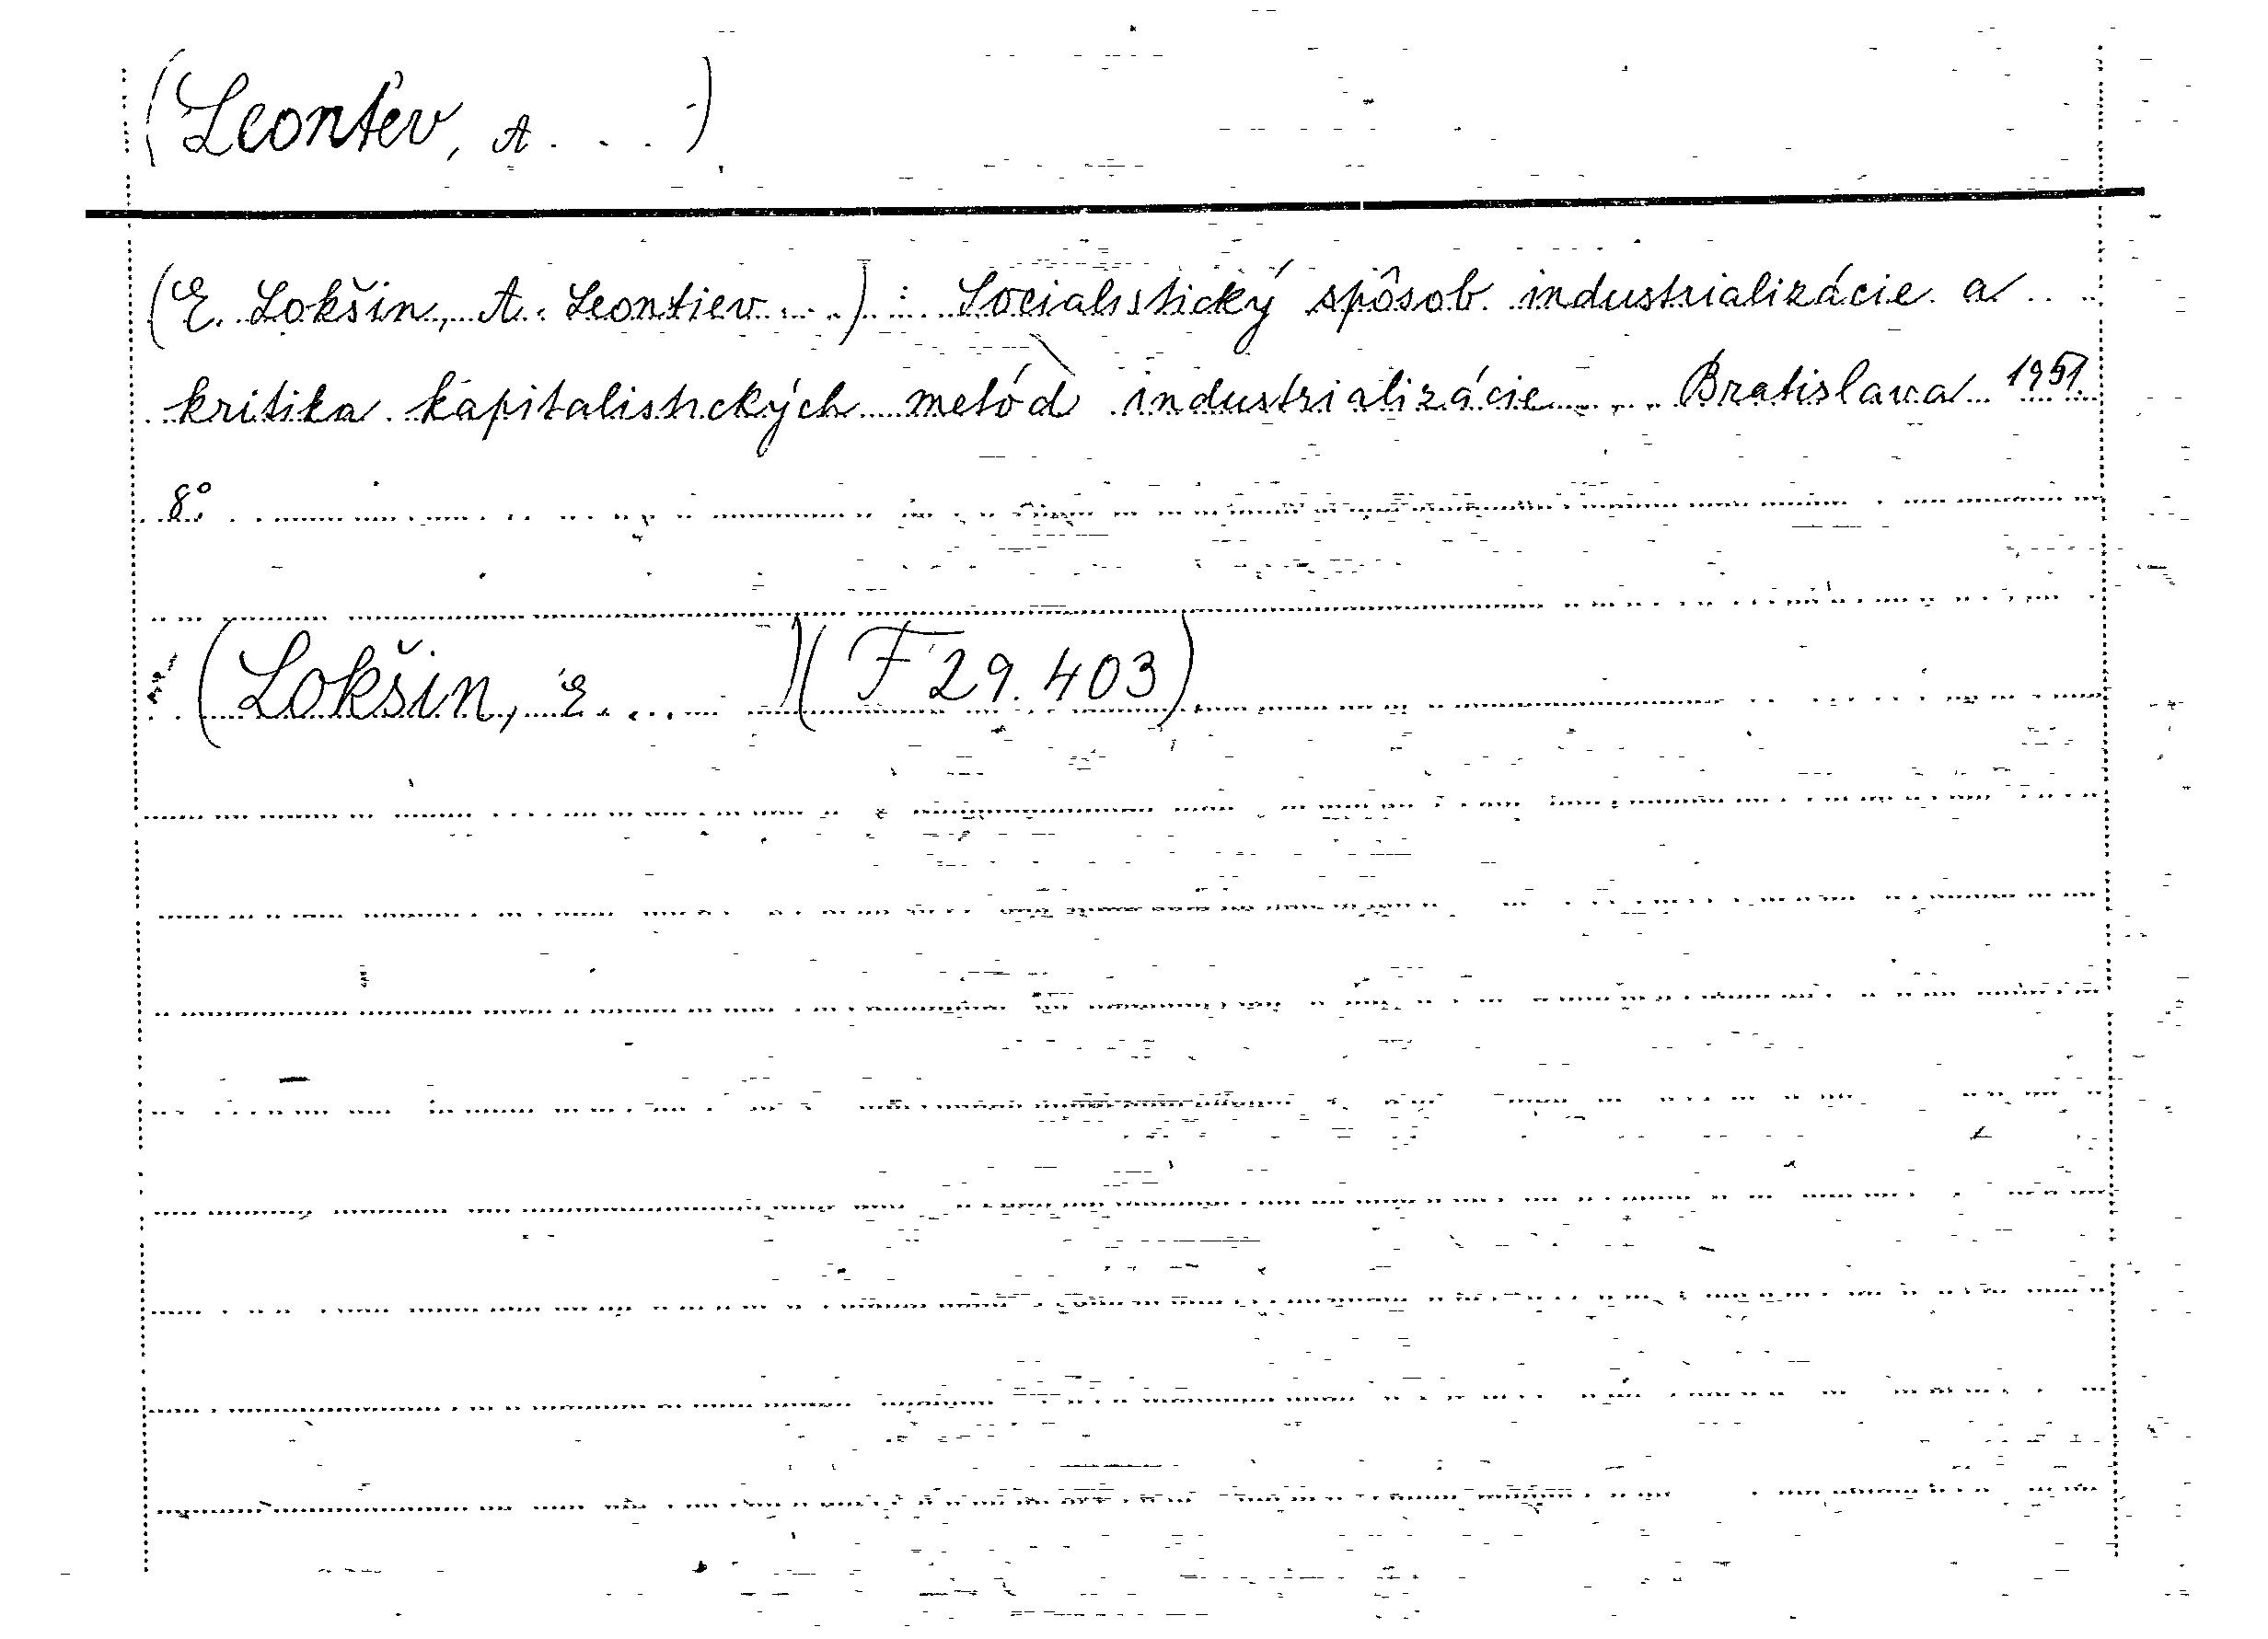 (Leonťev, A. . . )
(E. Lokšin, A. Leontiev . . .) : Socialistický spôsob industrializácie a
kritika kapitalistických metód industrializácie . . . Bratislava 1951.
8°.
(Lokšin, E. . . . )(F 29.403)